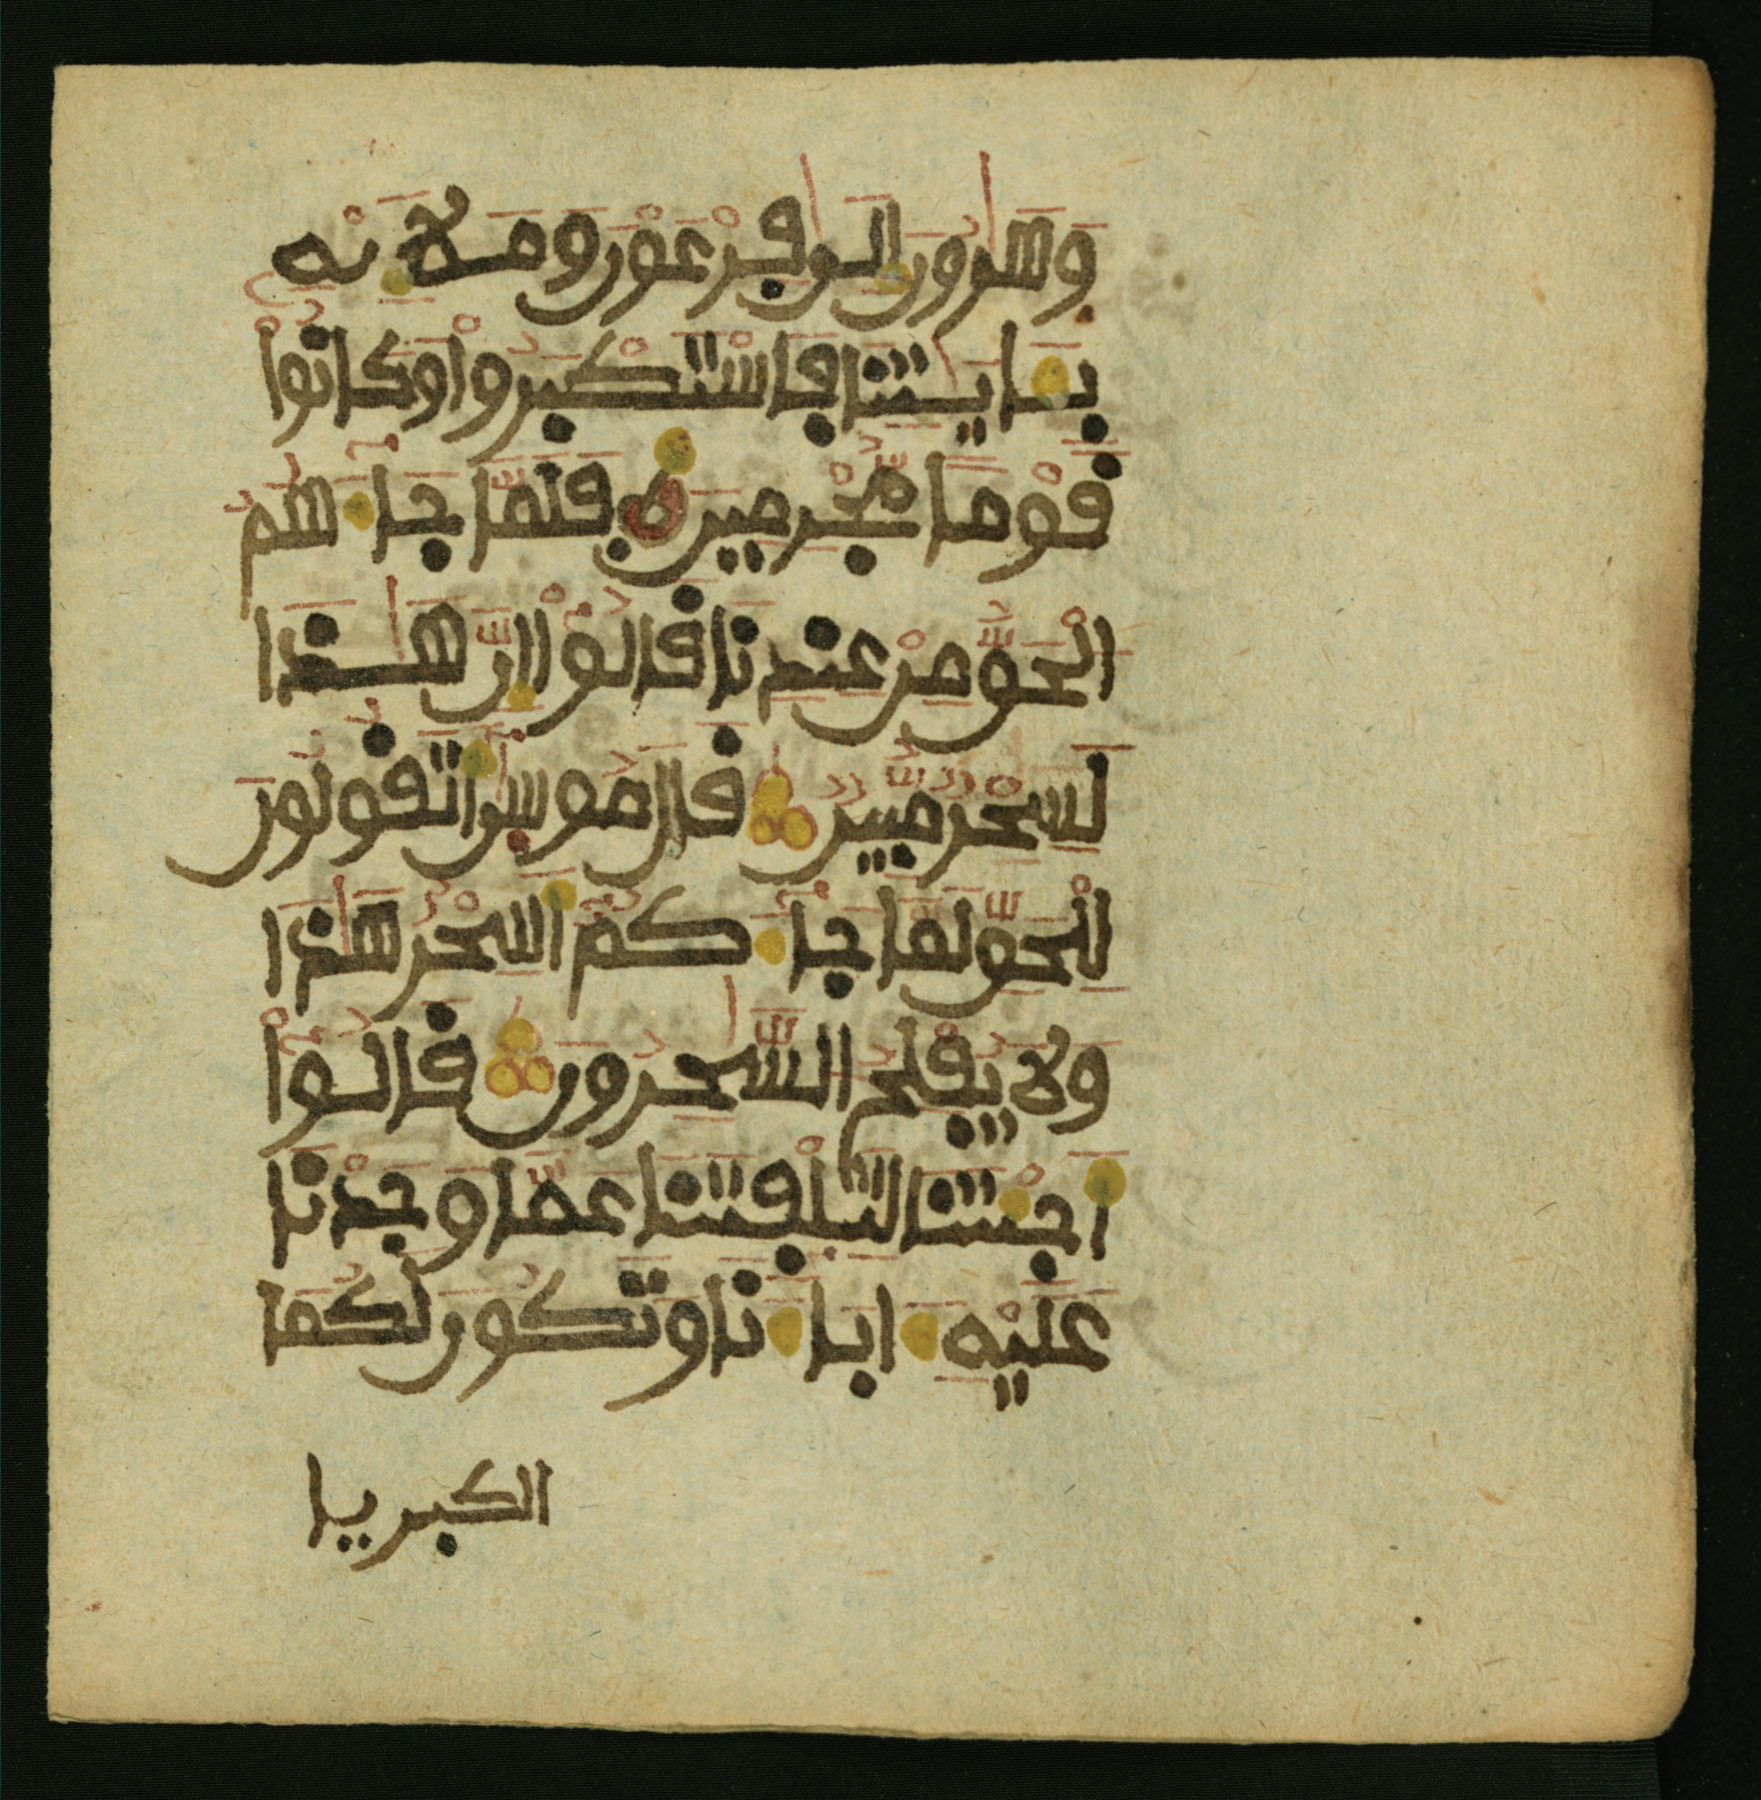 وَهَٰرُونَ إِلَىٰ فِرْعَوْنَ وَمَلَإِيْهِۦ
بِـَٔايَٰتِنَا فَاسْتَكْبَرُواْ وَكَانُواْ
قَوْمًا مُّجْرِمِينَ فَلَمَّا جَآءَهُمُ
الْحَقُّ مِنْ عِندِنَا قَالُوٓاْ إِنَّ هَٰذَا
لَسِحْرٌ مُّبِينٌ قَالَ مُوسَىٰٓ أَتَقُولُونَ
لِلْحَقِّ لَمَّا جَآءَكُمْ أَسِحْرٌ هَٰذَا
وَلَا يُفْلِحُ السَّٰحِرُونَ قَالُوٓاْ
أَجِئْتَنَا لِتَلْفِتَنَا عَمَّا وَجَدْنَا
عَلَيْهِ ءَابَآءَنَا وَتَكُونَ لَكُمَا
الكبريا